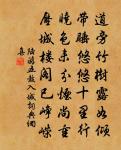 道旁竹樹露如傾
帶睡悠悠十里行
色未分尚重
層城樓閣已崢嶸
陸游五鼓入城詞典網
集